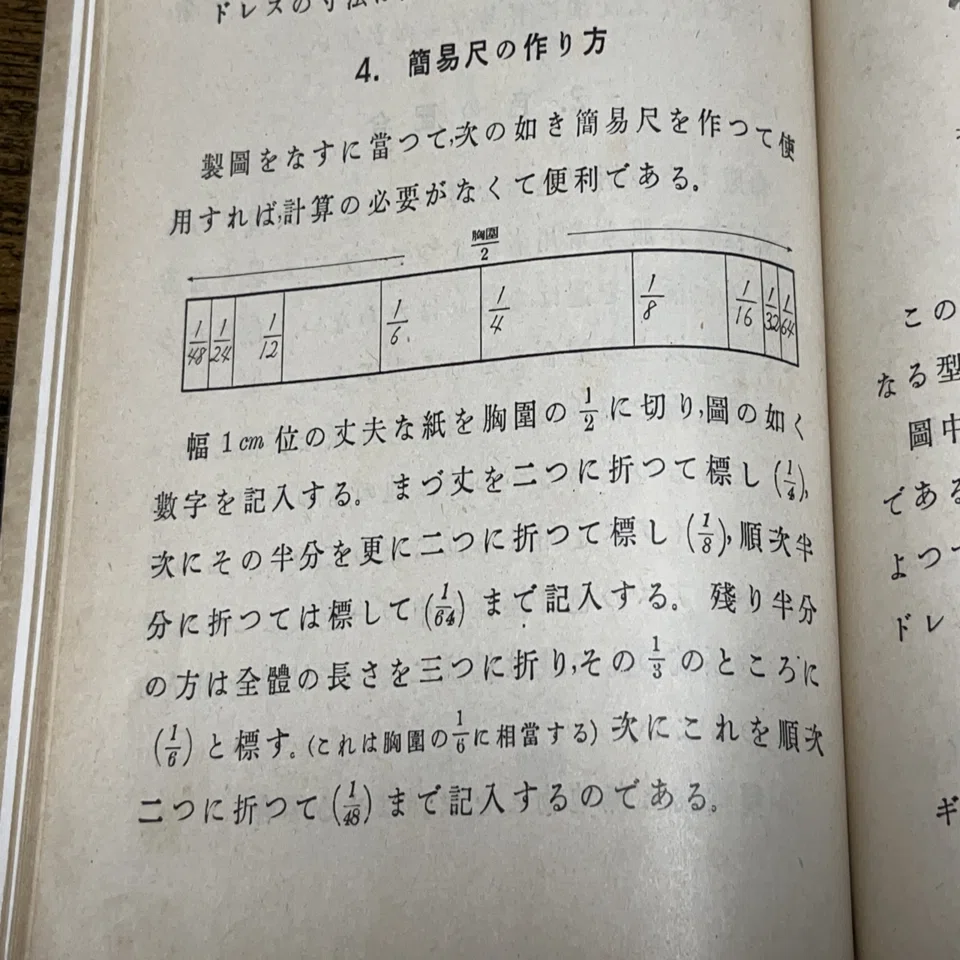 ドレスの寸法は
4. 簡易尺の作り方
製圖をなすに當つて,次の如き簡易尺を作つて使
用すれば,計算の必要がなくて便利である。
胸圍/2
1/48 1/24 1/12 1/6 1/4 1/8 1/16 1/32 1/64
幅1cm位の丈夫な紙を胸圍の1/2に切り,圖の如く
數字を記入する。 まづ丈を二つに折つて標し(1/4),
次にその半分を更に二つに折つて標し(1/8),順次半
分に折つては標して(1/64)まで記入する。 殘り半分
の方は全體の長さを三つに折り,その1/3のところに
(1/6)と標す。(これは胸圍の1/6に相當する)次にこれを順次
二つに折つて(1/48)まで記入するのである。
この
なる型
圖中
である
よつて
ドレ
ギ